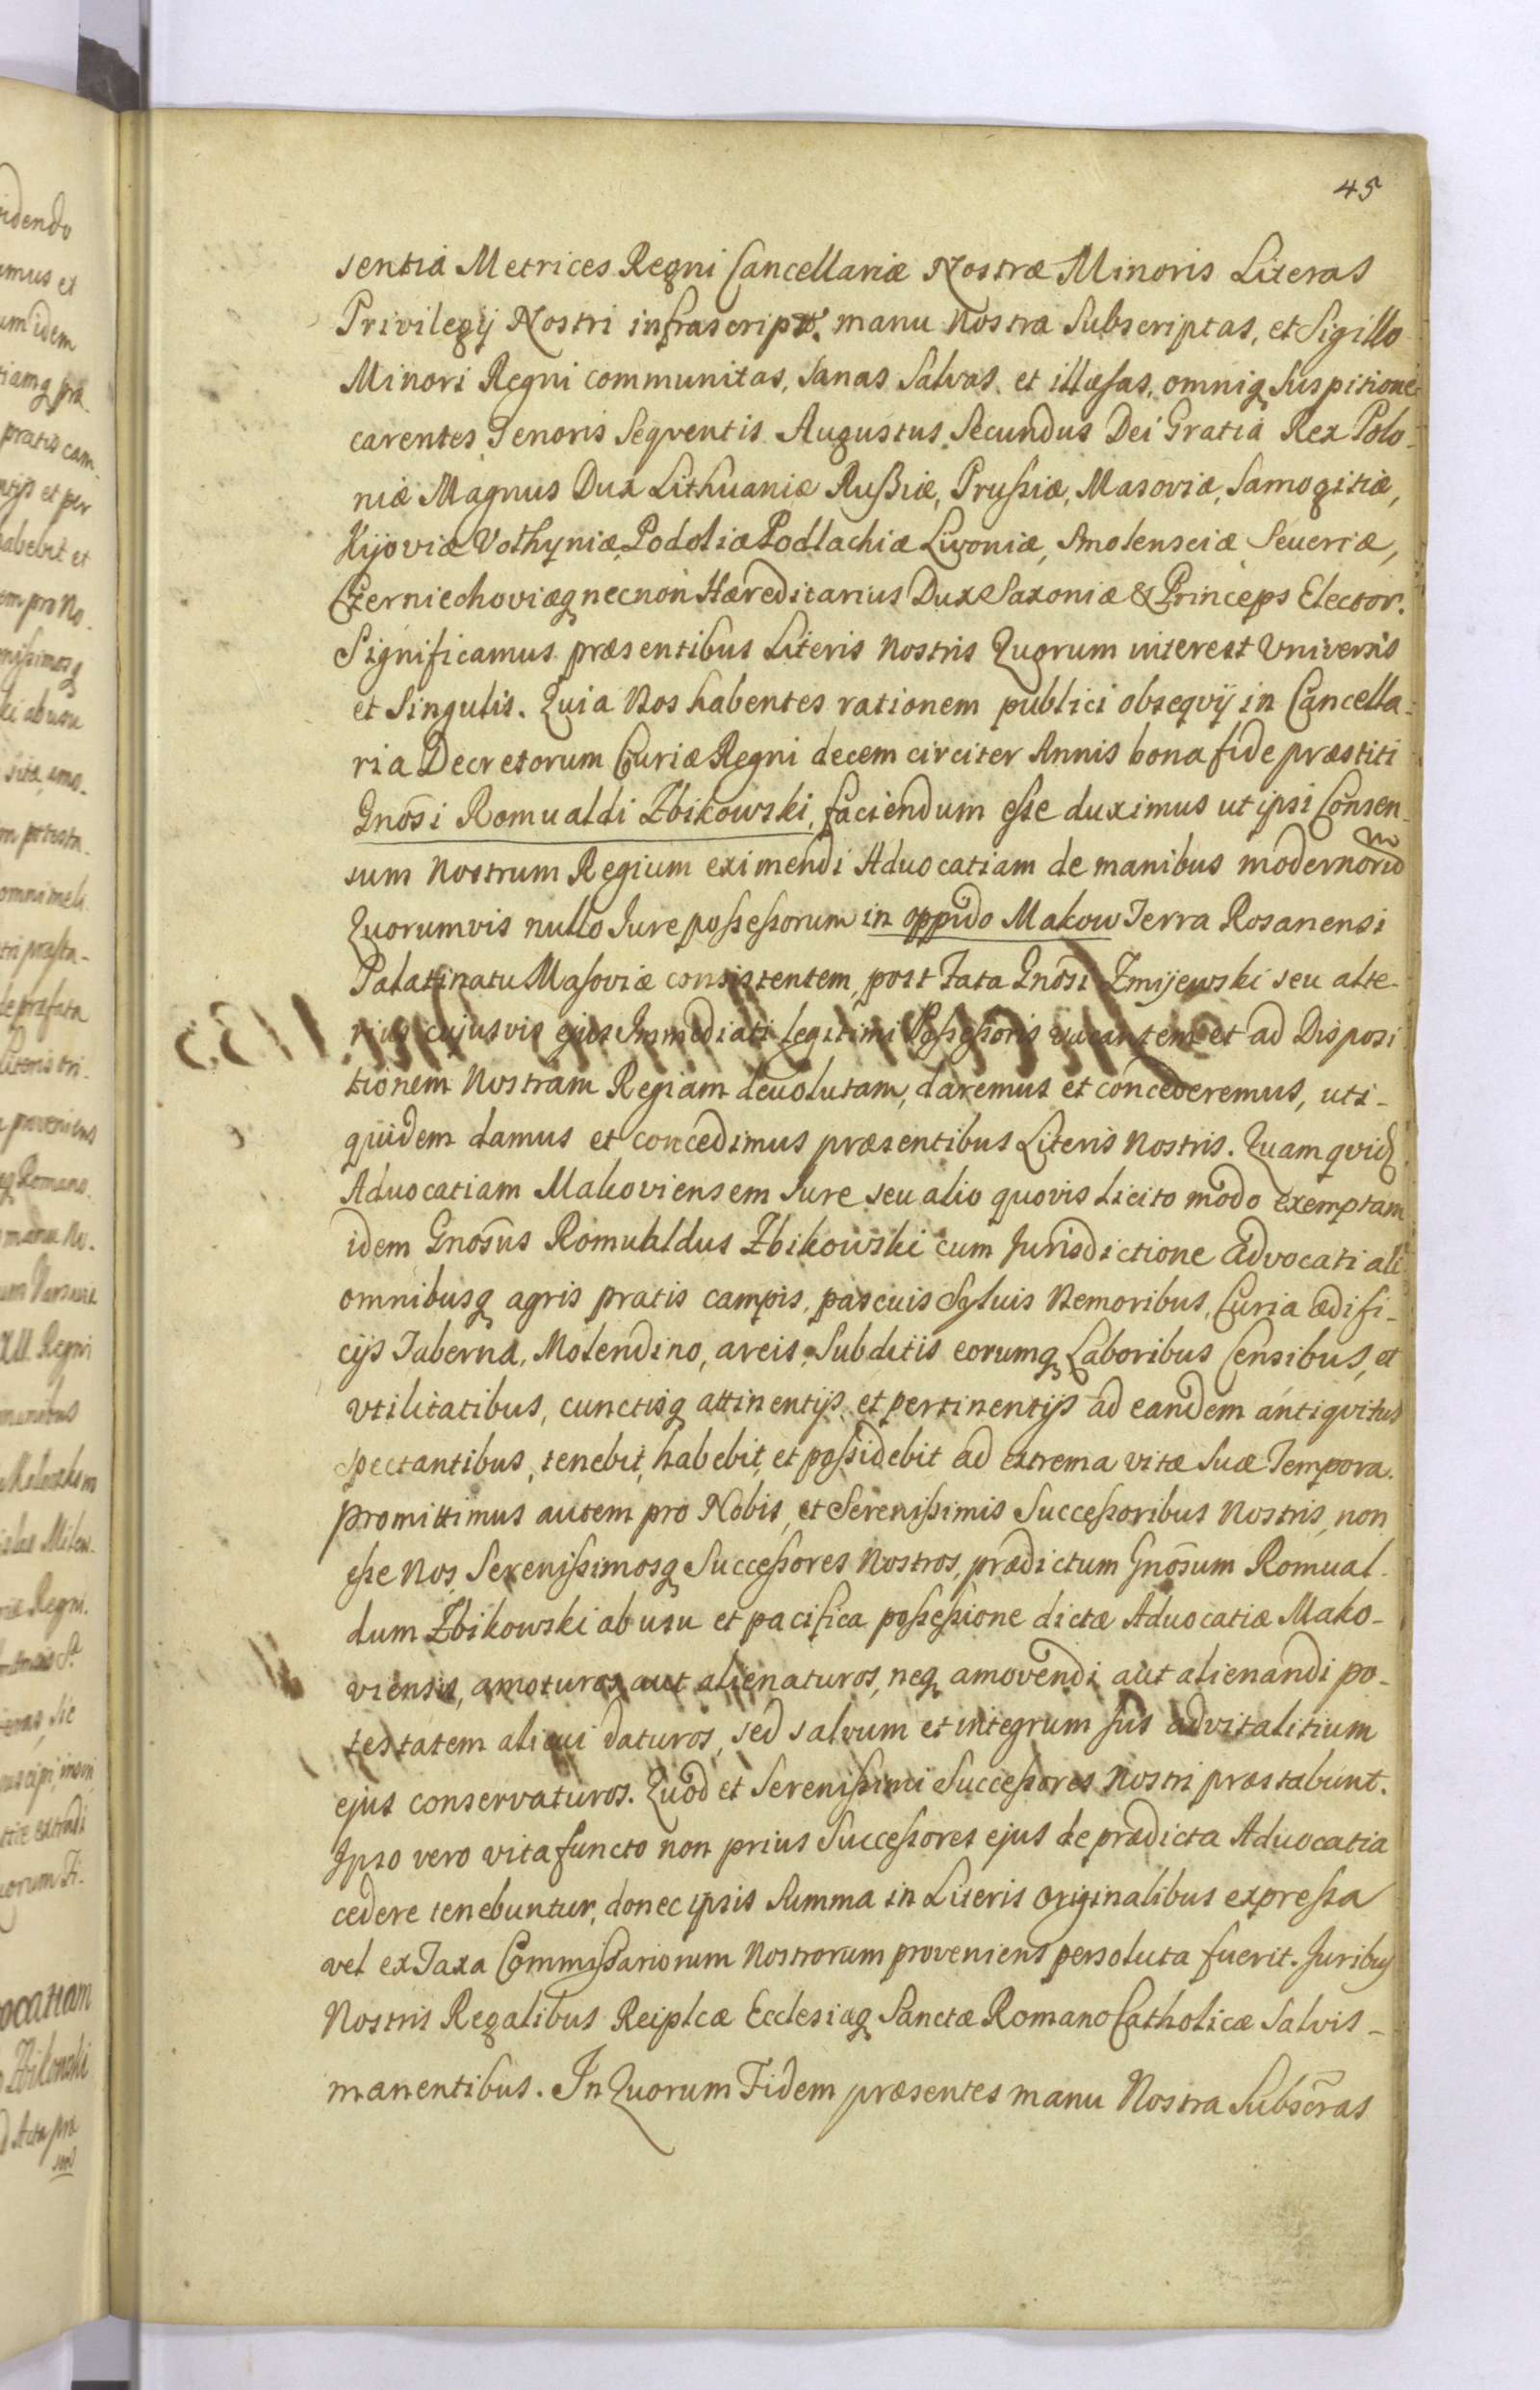 45
sentia Metrices Regni Cancellariæ Nostræ Minoris Literas
Privilegij Nostri infrascript. manu Nostra Subscriptas, et Sigillo
Minori Regni communitas, Sanas Salvas et illæsas, omniq suspitione
carentes, Tenoris Seqventis. Augustus Secundus Dei Gratia Rex Polo-
niæ Magnus Dux Lithuaniæ Rußiæ, Prussiæ, Masoviæ, Samogitiæ,
Kijoviæ Volhyniæ, Podoliæ Podlachiæ Livoniæ, Smolensciæ Seueriæ,
Czerniechoviæq necnon Hæreditarius Dux Saxoniæ & Princeps Elector.
Significamus præsentibus Literis Nostris Quorum interest Universis
et Singulis. Quia Nos habentes rationem publici obseqvij in Cancella-
ria Decretorum Curiæ Regni decem circiter Annis bona fide præstiti
Gnosi Romualdi Zbikowski, faciendum esse duximus ut ipsi Consen-
sum Nostrum Regium eximendi Aduocatiam de manibus modernorum
Quorumvis nullo Jure possessorum in oppido Makow Terra Rosanensi
Palatinatu Masoviæ consistentem, post Fata Gnosi Zmijewski seu alte-
rius cujusvis ejus Immediati legitimi Possessoris vacantem et ad Disposi
tionem Nostram Regiam deuolutam, daremus et concederemus, uti-
quidem damus et concedimus præsentibus Literis Nostris. Quam qvid
Aduocatiam Makoviensem Jure seu alio quovis licito modo exemptam
idem Gnosus Romualdus Zbikowski cum Jurisdictione advocatiali
omnibusq agris pratis campis, pascuis Sylvis Nemoribus, Curia ædifi-
cijs Taberna, Molendino, areis, Subditis eorumq Laboribus Censibus, et
vtilitatibus, cunctisq attinentijs et pertinentijs ad eandem antiqvitus
Spectantibus, tenebit, habebit, et possidebit ad extrema vitæ Suæ Tempora.
Promittimus autem pro Nobis, et Serenissimis Successoribus Nostris, non
esse Nos Serenissimosq Successores Nostros, prædictum Gnosum Romual-
dum Zbikowski ab usu et pacifica possessione dictæ Aduocatiæ Mako-
viensis, amoturos aut alienaturos, neq amovendi aut alienandi po-
testatem alicui daturos, sed salvum et integrum jus advitalitium
ejus conservaturos. Quod et Serenissimi Successores Nostri præstabunt.
Ipso vero vita functo non prius Successores ejus de prædicta Aduocatia
cedere tenebuntur, donec ipsis Summa in Literis originalibus expressa
vel ex Taxa Commissariorum Nostrorum proveniens persoluta fuerit. Juribus
Nostris Regalibus Reiplcæ Ecclesiæq Sanctæ Romano Catholicæ Salvis-
manentibus. In Quorum Fidem præsentes manu Nostra Subscras